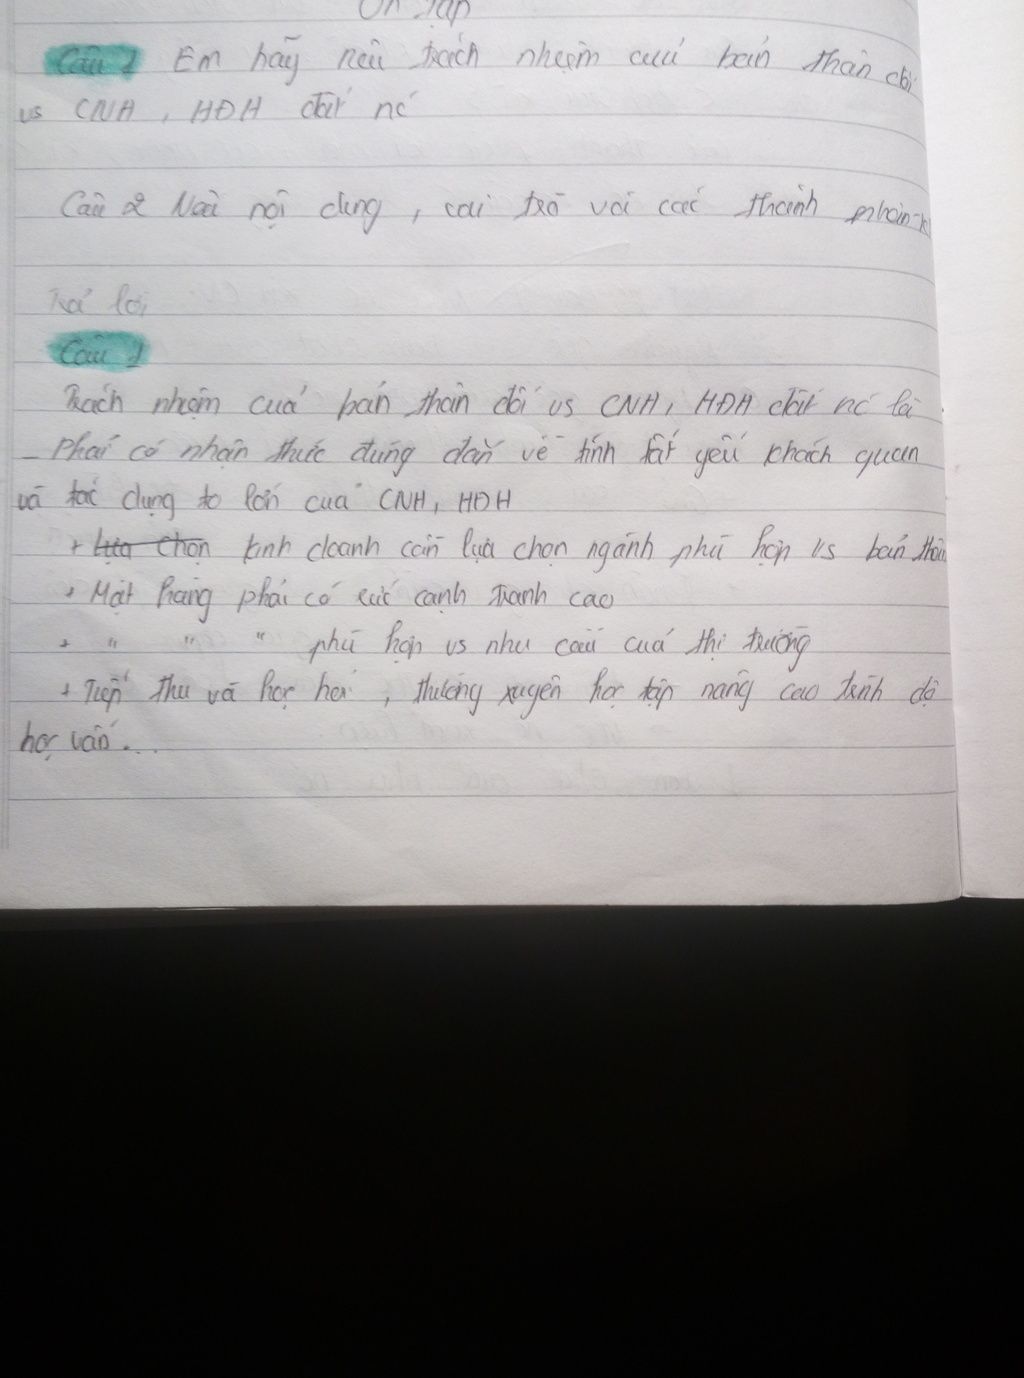 Ôn tập
Câu 1 Em hãy nêu trách nhiệm của bản thân đối
vs CNH, HĐH đất nc
Câu 2 Nêu nội dung, vai trò với các thành phần k
Trả lời
Câu 1
Trách nhiệm của bản thân đối vs CNH, HĐH đất nc là
- Phải có nhận thức đúng đắn về tính tất yếu khách quan
và tác dụng to lớn của CNH, HĐH
+ Lựa chọn kinh doanh cần lựa chọn ngành phù hợp vs bản thân
+ Mặt hàng phải có sức cạnh tranh cao
+ " " " phù hợp vs nhu cầu của thị trường
+ Tiếp thu và học hỏi, thường xuyên học tập nâng cao trình độ
học vấn...